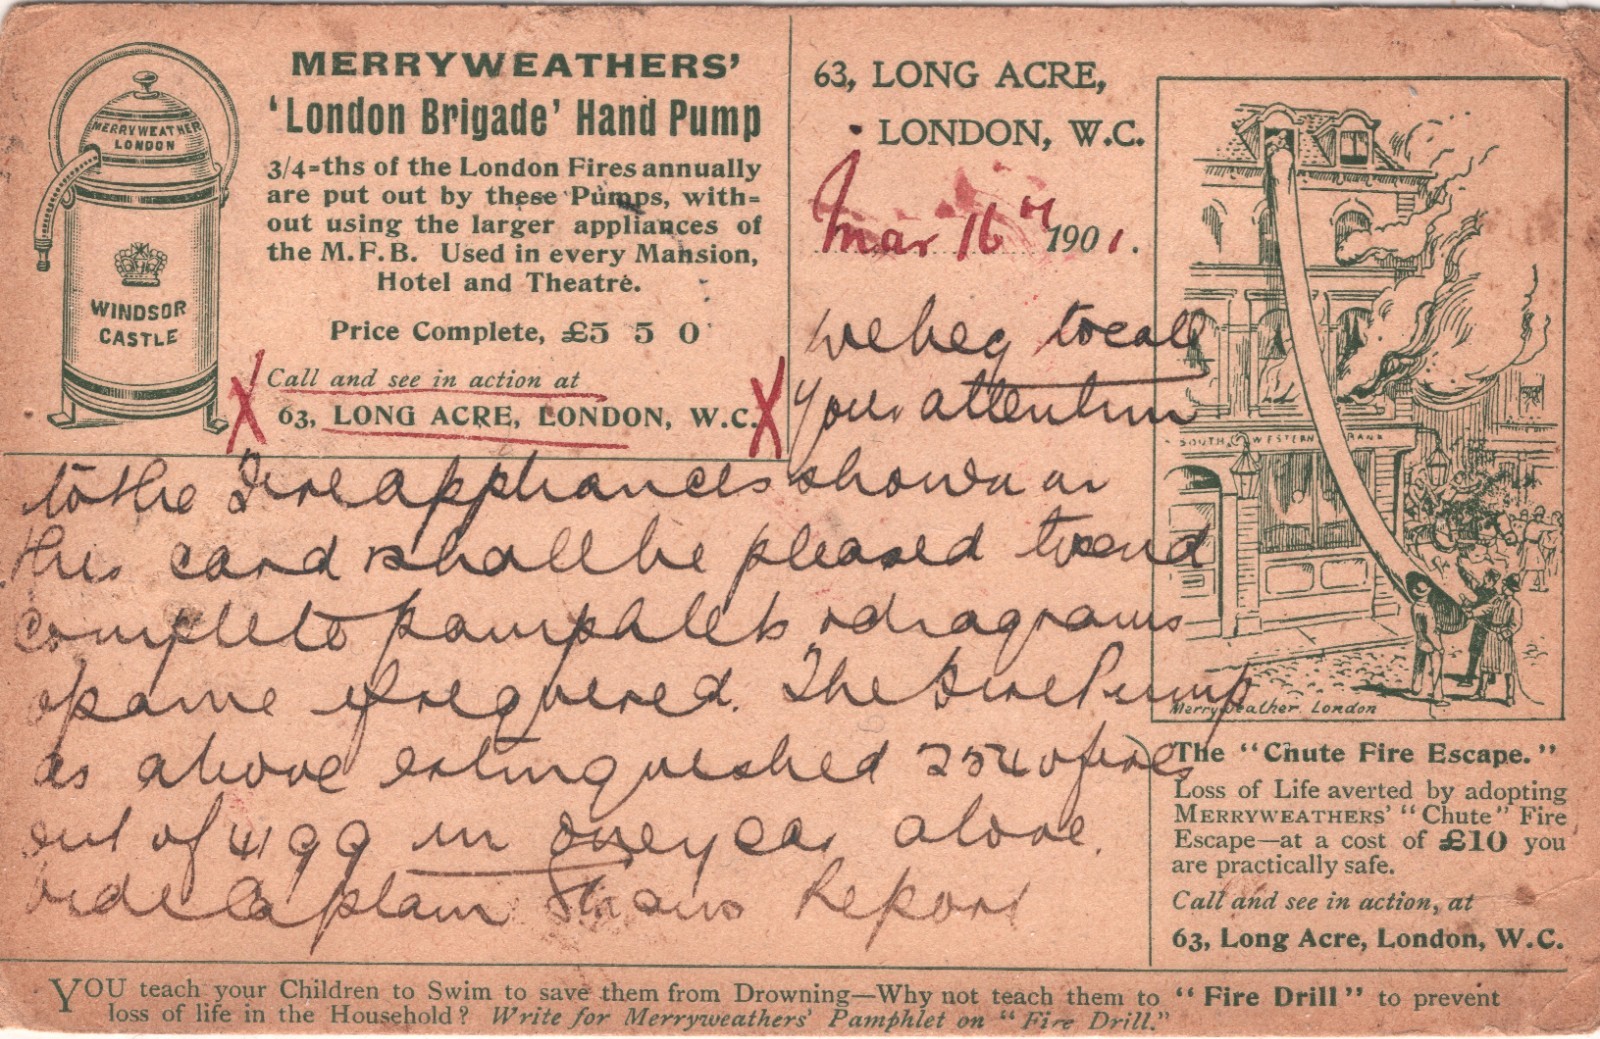 MERRYWEATHERS'
'London Brigade' Hand Pump
3/4=ths of the London Fires annually
are put out by these Pumps, with=
out using the larger appliances of
the M.F.B. Used in every Mansion,
Hotel and Theatre.
Price Complete, £5 5 0
Call and see in action at
X 63, LONG ACRE, LONDON, W.C. X
MERRYWEATHER
LONDON
WINDSOR
CASTLE
63, LONG ACRE,
LONDON, W.C.
Mar 16th 1901.
We beg to call
your attention
to the Fire appliances shown on
this card & shall be pleased to send
complete pamphlets & diagrams
of same if required. The Fire Pump
as above extinguished 2540 fires
out of 4199 in one year alone.
vide Captain Report
SOUTH WESTERN BANK
Merryweather. London
The "Chute Fire Escape."
Loss of Life averted by adopting
MERRYWEATHERS' "Chute" Fire
Escape—at a cost of £10 you
are practically safe.
Call and see in action, at
63, Long Acre, London, W.C.
YOU teach your Children to Swim to save them from Drowning—Why not teach them to "Fire Drill" to prevent
loss of life in the Household? Write for Merryweathers' Pamphlet on "Fire Drill."